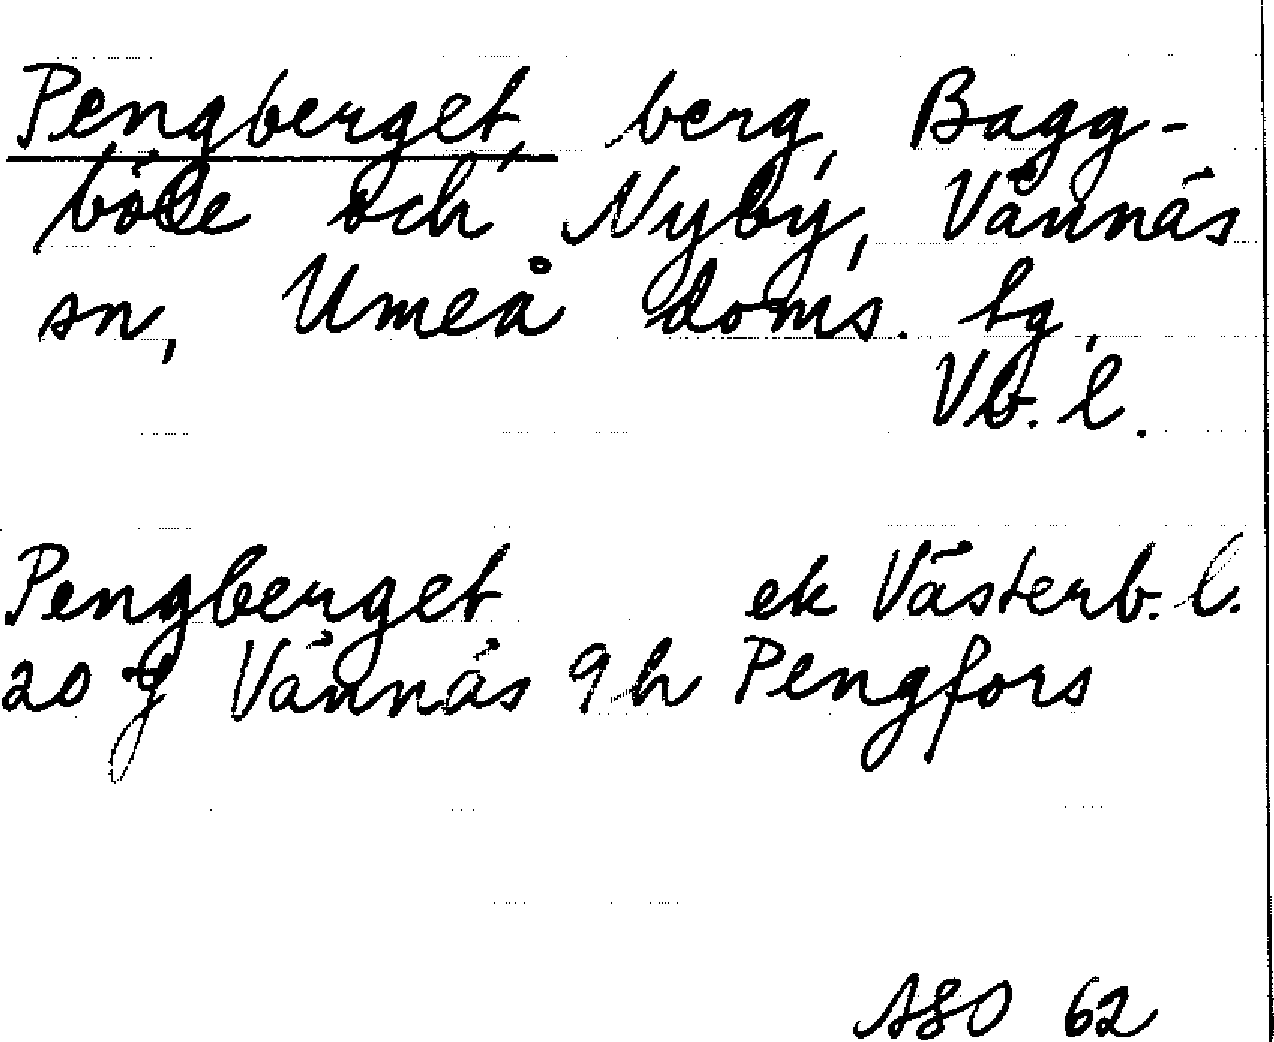 Pengberget, berg, Bagg-
böle och Nyby, Vännäs
sn, Umeå doms. tg,
Vb. l.
Pengberget ek Västerb. l.
20 J Vännäs 9 h Pengfors
ASO 62